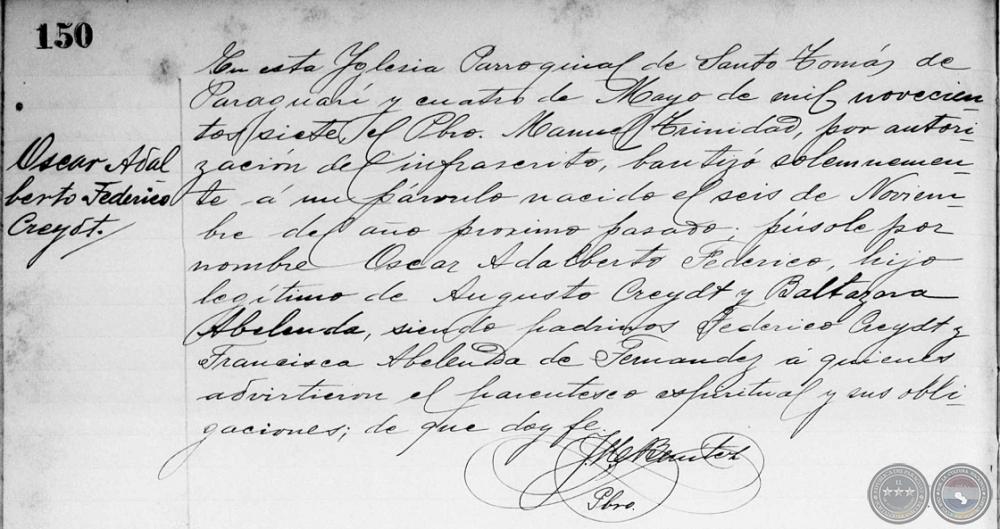 150
Oscar Adal
berto Federico
Creydt.
En esta Yglesia Parroquial de Santo Tomás de
Paraguarí y cuatro de Mayo de mil novecien-
tos siete, el Pbro. Manuel Trinidad, por autori-
zación del infrascrito, bautizó solemnemen-
te á un párvulo nacido el seis de Noviem-
bre del año proximo pasado; púsole por
nombre Oscar Adalberto Federico, hijo
legítimo de Augusto Creydt y Baltazara
Abelenda, siendo padrinos Federico Creydt y
Francisca Abelenda de Fernandez á quienes
advirtieron el parentesco espiritual y sus obli-
gaciones; de que doy fe.
Benitez
Pbro.